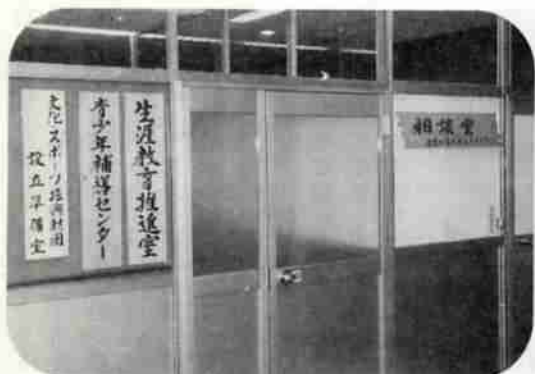 生涯教育推進室
青少年補導センター
文化スポーツ振興財団
設立準備室
相談室